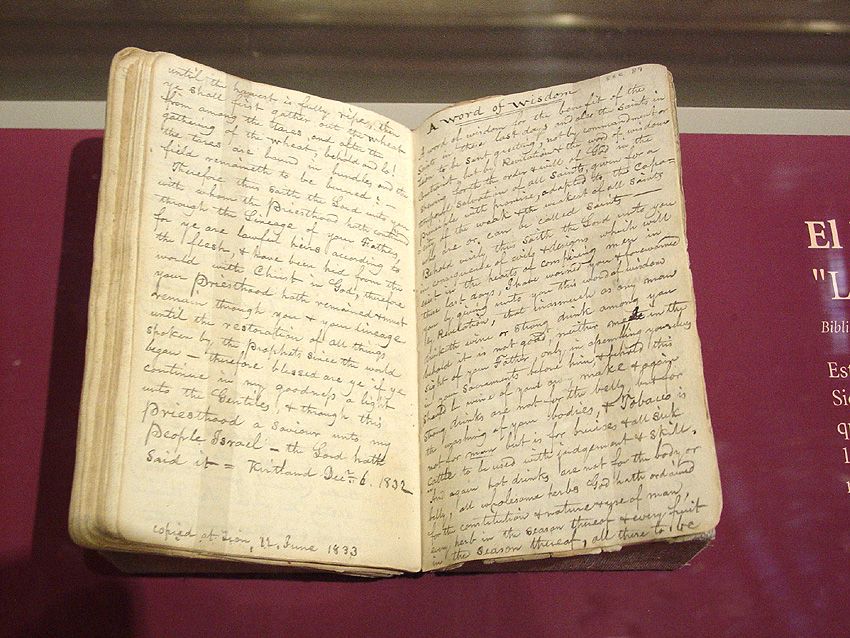 until the harvest is fully ripe, then
ye shall first gather out the wheat
from among the tares, and after the
gathering of the wheat, behold and lo!
the tares are bound in bundles, and the
field remaineth to be burned:
Therefore thus saith the Lord unto you
with whom the Priesthood hath continued
through the Lineage of your Fathers,
for ye are lawful heirs according to
the flesh, & have been hid from the
world with Christ in God; therefore
your Priesthood hath remained & must
remain through you & your lineage
until the restoration of all things
spoken by the Prophets since the world
began — therefore blessed are ye if ye
continue in my goodness a light
unto the Gentiles, & through this
priesthood a Saviour unto my
People Israel — the Lord hath
said it = Kirtland Decr. 6. 1832
copied at Zion, 12, June 1833
Sec. 89
A Word of Wisdom
A word of wisdom for the benefit of the
Saints in these last days and also the Saints in
Zion to be sent greeting, not by commandment or
constraint but by Revelation & the word of wisdom
shewing forth the order & will of God in the
temporal Salvation of all Saints, given for a
principle with promise, adapted to the capa-
city of the weak & the weakest of all Saints
who are or can be called Saints
Behold verily thus saith the Lord unto you
in consequence of evils & designs which will
exist in the hearts of conspiring men in
these last days, I have warned you & forewarned
you by giving unto you this word of wisdom
by Revelation, that inasmuch as any man
drinketh wine or strong drink among you
behold it is not good neither in the
sight of your Father, only in assembling yourselves
in your Sacraments before him & behold this
should be wine of your own make & again
strong drinks are not for the belly, but for
the washing of your bodies, & Tobacco is
not for man but is for bruises & all Sick
cattle to be used with judgement & skill.
And again hot drinks are not for the body or
belly, all wholesome herbs God hath ordained
for the constitution & nature & use of man,
every herb in the season thereof & every fruit
in the season thereof, all these to be
El
"L
Bibli
Est
Si
q
l